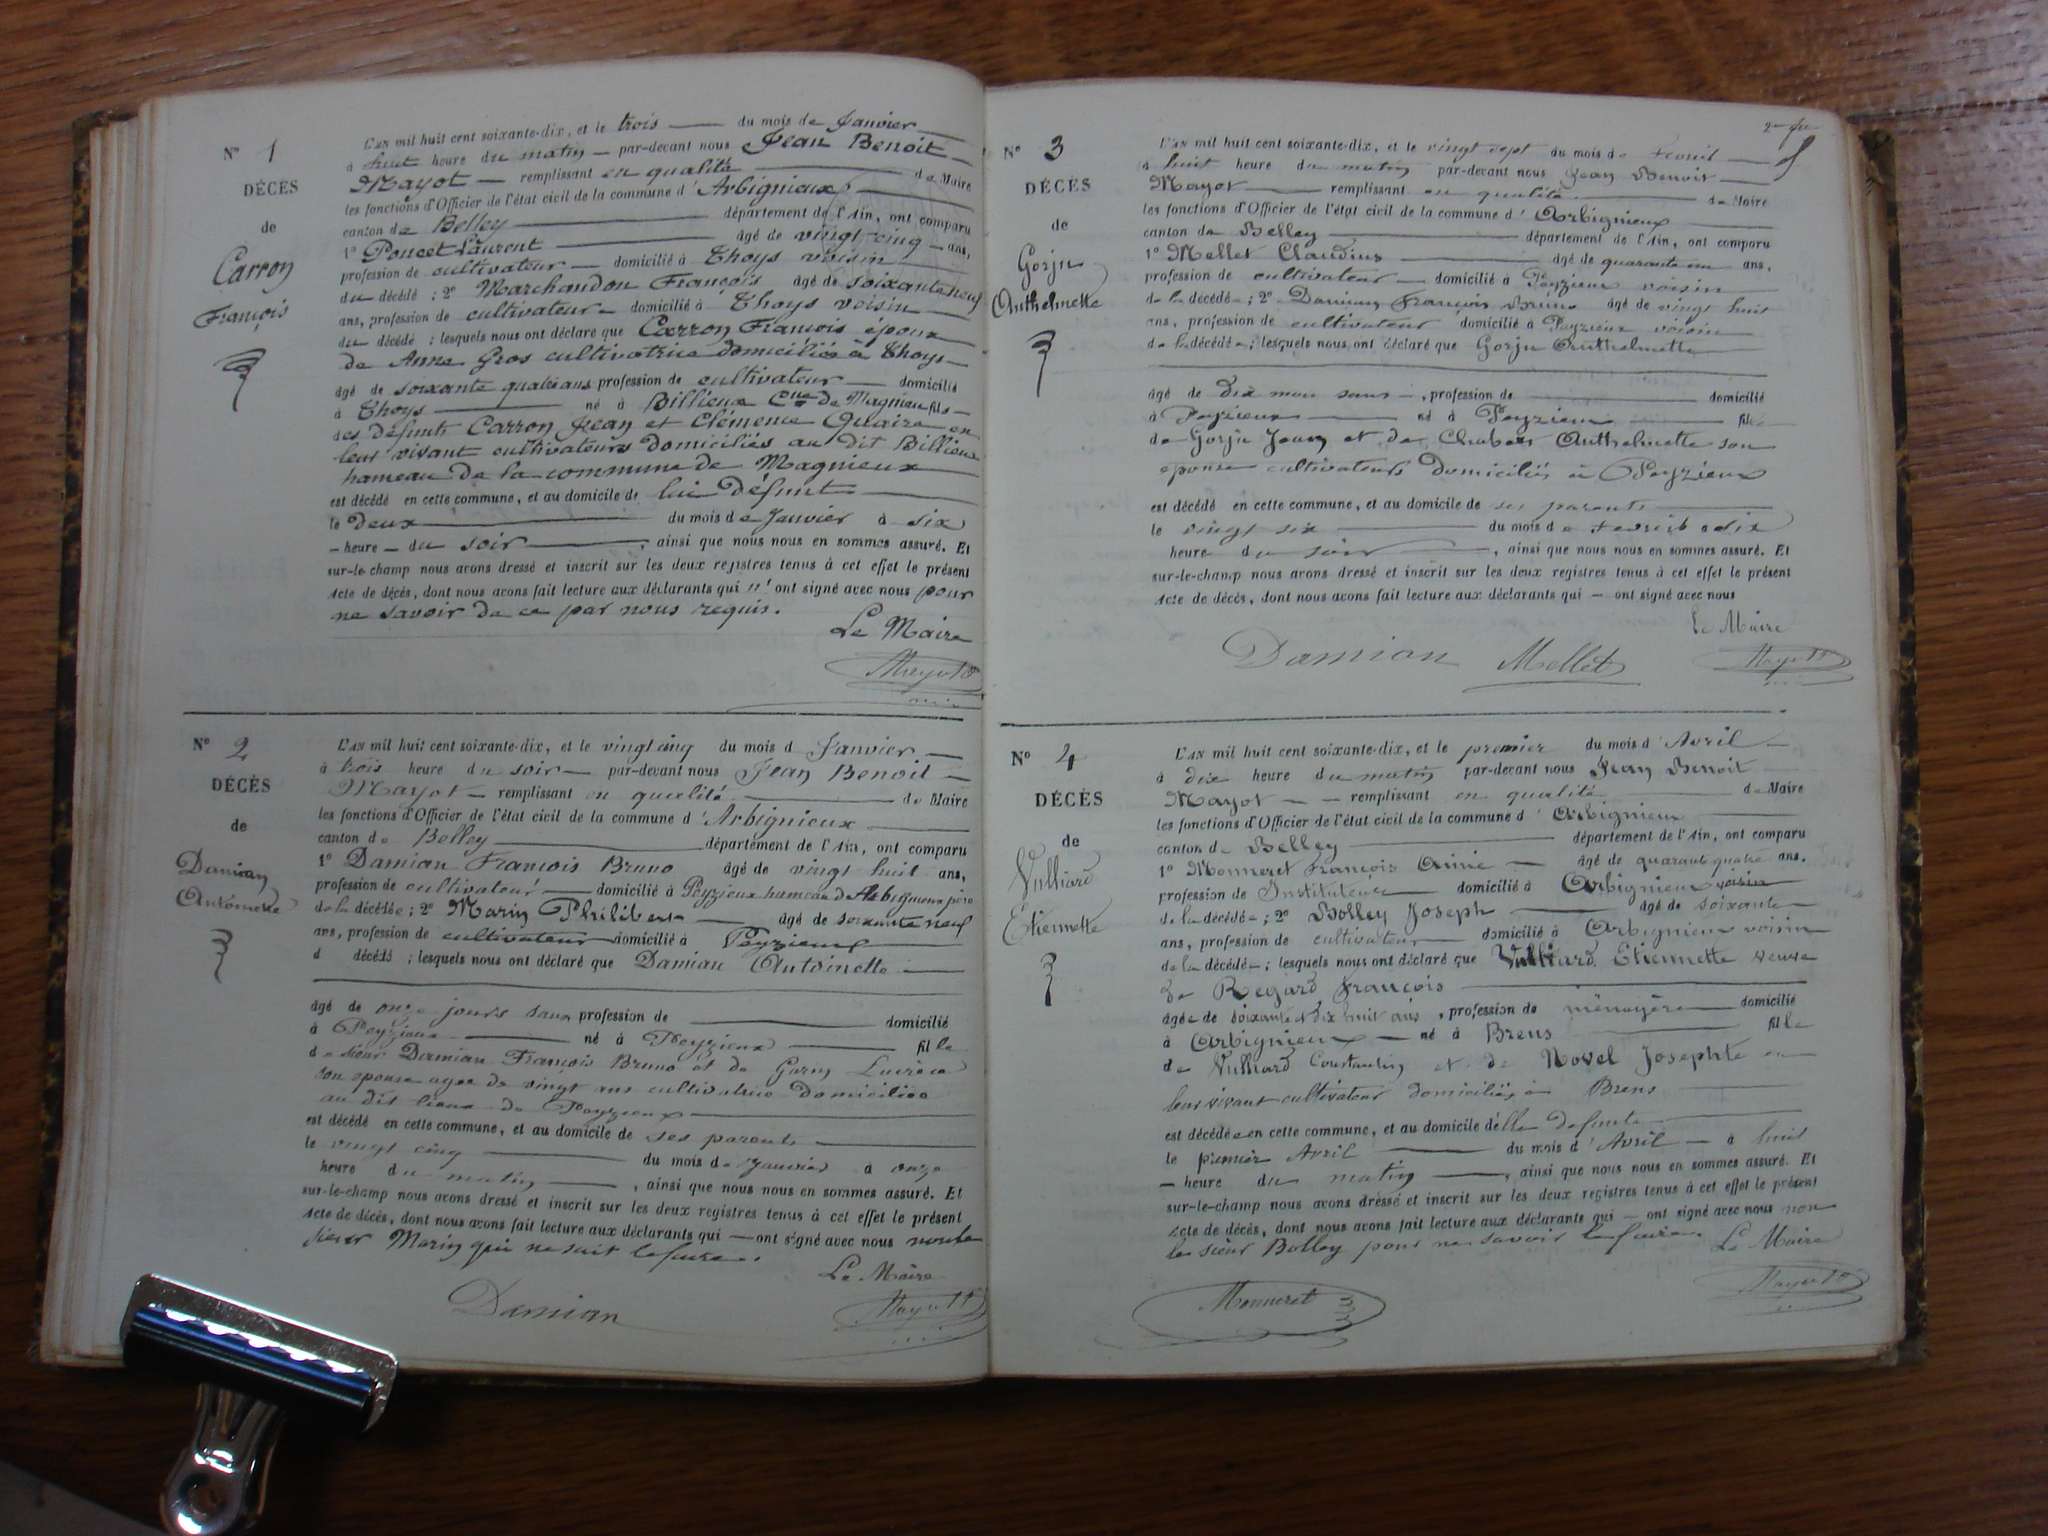 N° 1
DÉCÈS
de
Carron
François
L'AN mil huit cent soixante-dix, et le trois du mois de Janvier
à huit heure du matin par-devant nous Jean Benoit
Mayot remplissant en qualité de Maire
les fonctions d'Officier de l'état civil de la commune d'Arbignieux
canton de Belley département de l'Ain, ont comparu
1° Poncet Laurent âgé de vingt cinq ans,
profession de cultivateur domicilié à Thoys voisin
du décédé ; 2° Marchandon François âgé de soixante neuf
ans, profession de cultivateur domicilié à Thoys voisin
du décédé ; lesquels nous ont déclaré que Carron François époux
de Anne Gros cultivatrice domiciliés à Thoys
âgé de soixante quatre ans profession de cultivateur domicilié
à Thoys né à Billieux Cne de Magnieu fils
des défunts Carron Jean et Clémence Quaire en
leur vivant cultivateurs domiciliés au dit Billieux
hameau de la commune de Magnieux
est décédé en cette commune, et au domicile de lui défunt
le deux du mois de Janvier à six
heure du soir, ainsi que nous nous en sommes assuré. Et
sur-le-champ nous avons dressé et inscrit sur les deux registres tenus à cet effet le présent
acte de décès, dont nous avons fait lecture aux déclarants qui n'ont signé avec nous pour
ne savoir de ce par nous requis.
Le Maire
Mayot
N° 2
DÉCÈS
de
Damian
Antoinette
L'AN mil huit cent soixante-dix, et le vingt cinq du mois d Janvier
à trois heure du soir par-devant nous Jean Benoit
Mayot remplissant en qualité de Maire
les fonctions d'Officier de l'état civil de la commune d'Arbignieux
canton de Belley département de l'Ain, ont comparu
1° Damian François Bruno âgé de vingt huit ans,
profession de cultivateur domicilié à Peyzieux hameau d'Arbignieux père
de la décédée ; 2° Marin Philibert âgé de soixante neuf
ans, profession de cultivateur domicilié à Peyzieux
d décédé ; lesquels nous ont déclaré que Damian Antoinette
âgé de onze jours sans profession de domicilié
à Peyzieux né à Peyzieux fille
de sieur Damian François Bruno et de Garin Lucrèce
son epouse agée de vingt ans cultivatrice domiciliée
au dit lieux de Peyzieux
est décédé en cette commune, et au domicile de ses parents
le vingt cinq du mois de Janvier à onze
heure du matin, ainsi que nous nous en sommes assuré. Et
sur-le-champ nous avons dressé et inscrit sur les deux registres tenus à cet effet le présent
acte de décès, dont nous avons fait lecture aux déclarants qui ont signé avec nous non le
sieur Marin qui ne sait le faire.
Le Maire
Damian
Mayot
2me fre
N° 3
DÉCÈS
de
Gorju
Anthelmette
L'AN mil huit cent soixante-dix, et le vingt sept du mois de Fevrier
à huit heure du matin par-devant nous Jean Benoit
Mayot remplissant en qualité de Maire
les fonctions d'Officier de l'état civil de la commune d'Arbignieux
canton de Belley département de l'Ain, ont comparu
1° Mellet Claudius âgé de quarante un ans,
profession de cultivateur domicilié à Peyzieux voisin
de la décédée ; 2° Damian François Bruno âgé de vingt huit
ans, profession de cultivateur domicilié à Peyzieux voisin
de la décédée ; lesquels nous ont déclaré que Gorju Anthelmette
âgé de dix mois sans, profession de domicilié
à Peyzieux né à Peyzieux fille
de Gorju Jean et de Chaber Anthelmette son
epouse cultivateurs domiciliés à Peyzieux
est décédé en cette commune, et au domicile de ses parents
le vingt six du mois de Fevrier à dix
heure du soir, ainsi que nous nous en sommes assuré. Et
sur-le-champ nous avons dressé et inscrit sur les deux registres tenus à cet effet le présent
acte de décès, dont nous avons fait lecture aux déclarants qui ont signé avec nous
Le Maire
Damian Mellet Mayot
N° 4
DÉCÈS
de
Vulliard
Etiennette
L'AN mil huit cent soixante-dix, et le premier du mois d'Avril
à dix heure du matin par-devant nous Jean Benoit
Mayot remplissant en qualité de Maire
les fonctions d'Officier de l'état civil de la commune d'Arbignieux
canton de Belley département de l'Ain, ont comparu
1° Monneret François Aimé âgé de quarante quatre ans,
profession de Instituteur domicilié à Arbignieux voisin
de la décédée ; 2° Bolley Joseph âgé de soixante
ans, profession de cultivateur domicilié à Arbignieux voisin
de la décédée ; lesquels nous ont déclaré que Vulliard Etiennette veuve
de Regard François
âgée de soixante et dix huit ans, profession de ménagère domicilié
à Arbignieux né à Brens fille
de Vulliard Constantin et de Novel Josephte en
leur vivant cultivateur domiciliés à Brens
est décédée en cette commune, et au domicile d'elle défunte
le premier Avril du mois d'Avril à huit
heure du matin, ainsi que nous nous en sommes assuré. Et
sur-le-champ nous avons dressé et inscrit sur les deux registres tenus à cet effet le présent
acte de décès, dont nous avons fait lecture aux déclarants qui ont signé avec nous non
le sieur Bolley pour ne savoir le faire. Le Maire
Monneret Mayot